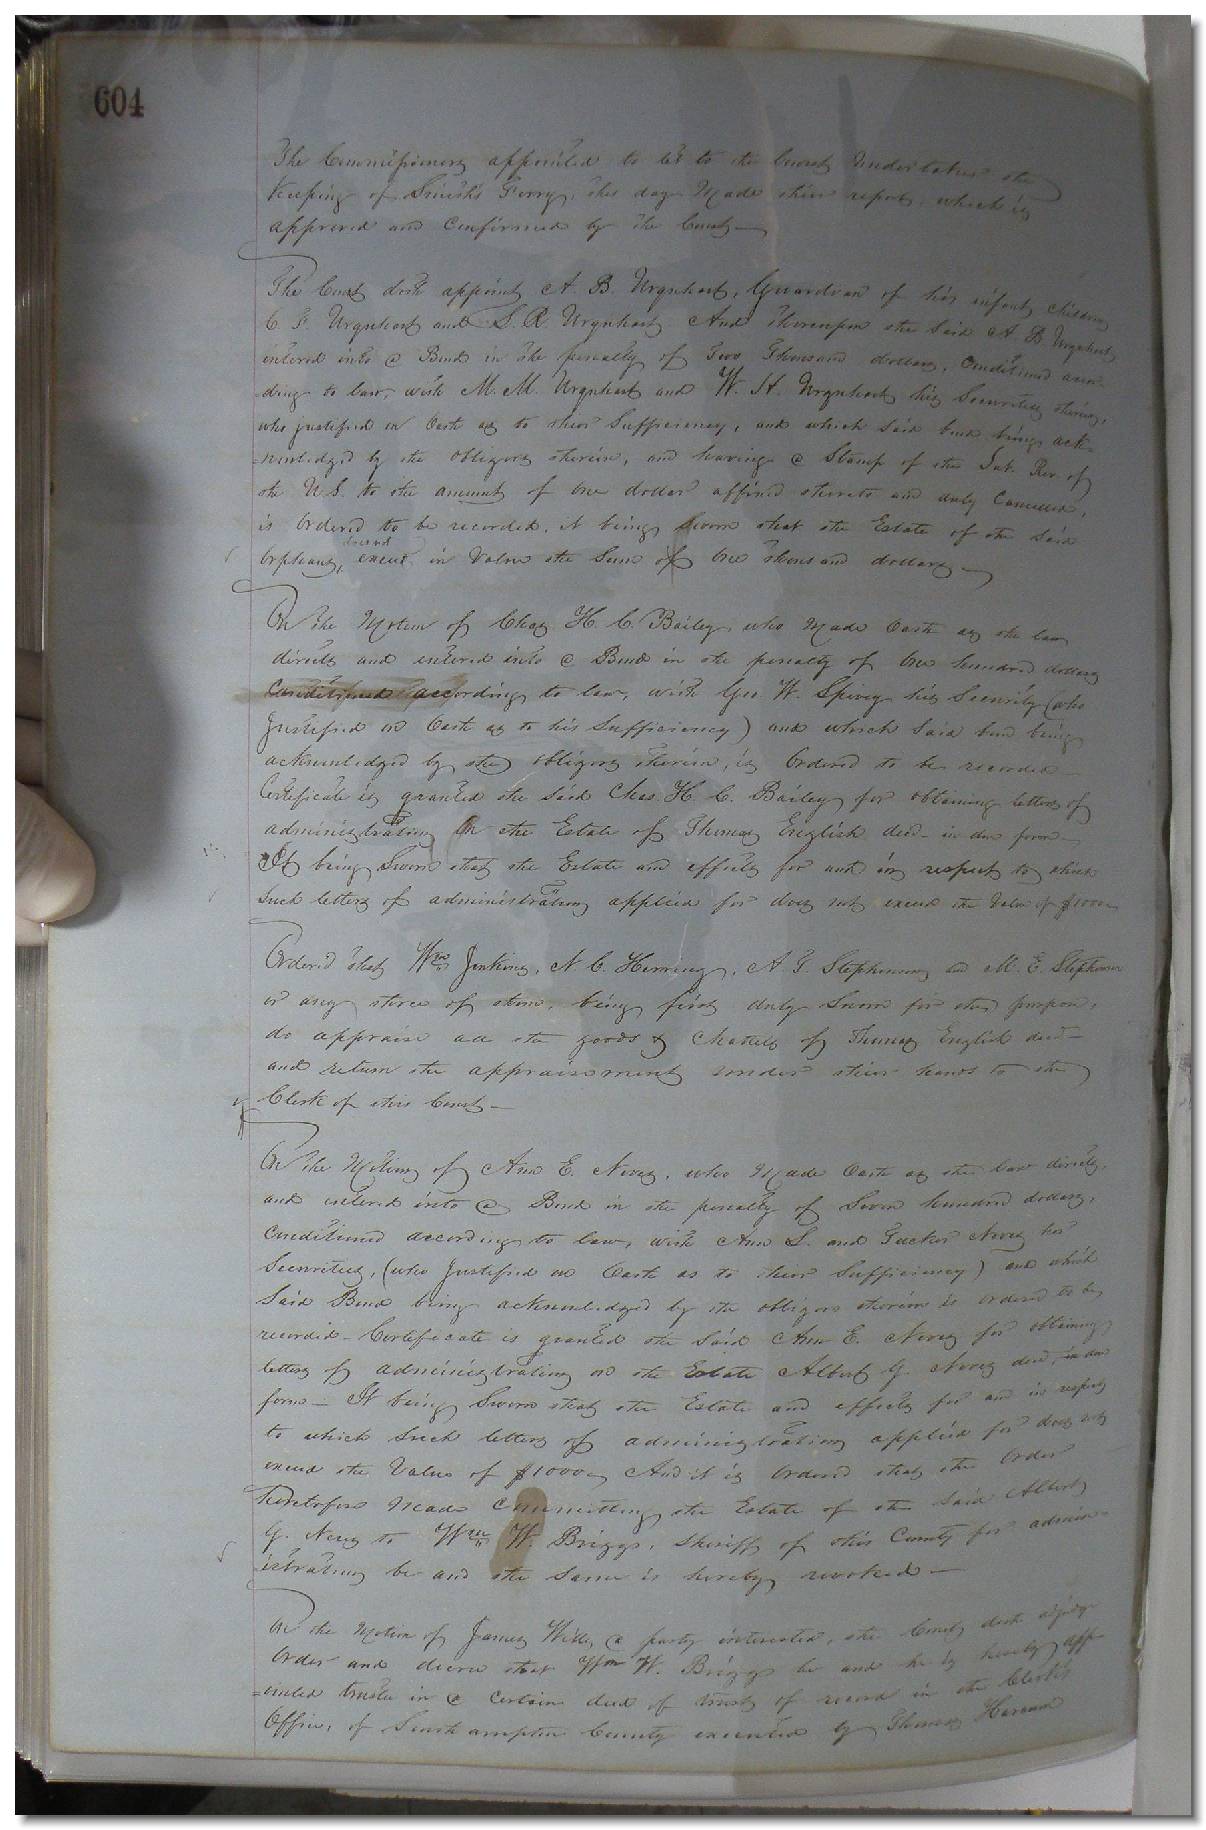 604
The Commissioners appointed to let to the lowest undertaker the
Keeping of Smith's Ferry, this day made their report, which is
approved and confirmed by the Court—
The Court doth appoint A. B. Urquhart, Guardian of his infant children
C. F. Urquhart and S. R. Urquhart And thereupon the said A B Urquhart
entered into a Bond in the penalty of Two Thousand dollars, Conditioned accor-
-ding to law, with M. M. Urquhart and W. H. Urquhart his Securities therein,
who justified on Oath as to their Sufficiency, and which said bond being ack-
-nowledged by the obligors therein, and having a Stamp of the Int. Rev. of
the U.S. to the amount of One dollar affixed thereto and duly Cancelled,
is Ordered to be recorded, it being sworn that the Estate of the said
Orphans, exceed in Value the Sum of One thousand dollars—
On the Motion of Chas H. C. Bailey, who made Oath as the law
directs and entered into a Bond in the penalty of One hundred dollars
Conditioned according to law, with Geo W. Spivey his Security (who
Justified on Oath as to his Sufficiency) and which said bond being
acknowledged by the obligors therein, is Ordered to be recorded—
Certificate is granted the said Chas. H. C. Bailey for obtaining letters of
administration on the Estate of Thomas English decd— in due form—
It being Sworn that the Estate and effects for and in respect to which
such letters of administration applied for does not exceed the Value of $1000—
Ordered that Wm Jenkins, N. C. Herring, A. J. Stephenson and M. E. Stephenson
or any three of them, being first duly Sworn for the purpose,
do appraise all the goods & Chattels of Thomas English decd—
and return the appraisement under their hands to the
Clerk of this Court—
On the Motion of Ann E. Novey, who made Oath as the law directs,
and entered into a Bond in the penalty of Seven hundred dollars,
Conditioned according to law, with Ann S. and Tucker Novey her
Securities, (who Justified on Oath as to their Sufficiency) and which
Said Bond being acknowledged by the obligors therein is ordered to be
recorded— Certificate is granted the said Ann E. Novey for obtaining
letters of administration on the Estate Albert G. Novey decd, in due
form— It being Sworn that the Estate and effects for and in respect
to which Such letters of administration applied for does not
exceed the Value of $1000— And it is Ordered that the Order
heretofore made Committing the Estate of the said Albert
G. Novey to Wm W. Briggs, Sheriff of this County for admin-
-istration be and the same is hereby revoked—
On the Motion of James Wills, a party interested, the Court doth adjudge
Order and decree that Wm W. Briggs be and he is hereby app-
-ointed trustee in a Certain deed of trust of record in the Clerk's
Office, of Southampton County executed by Thomas